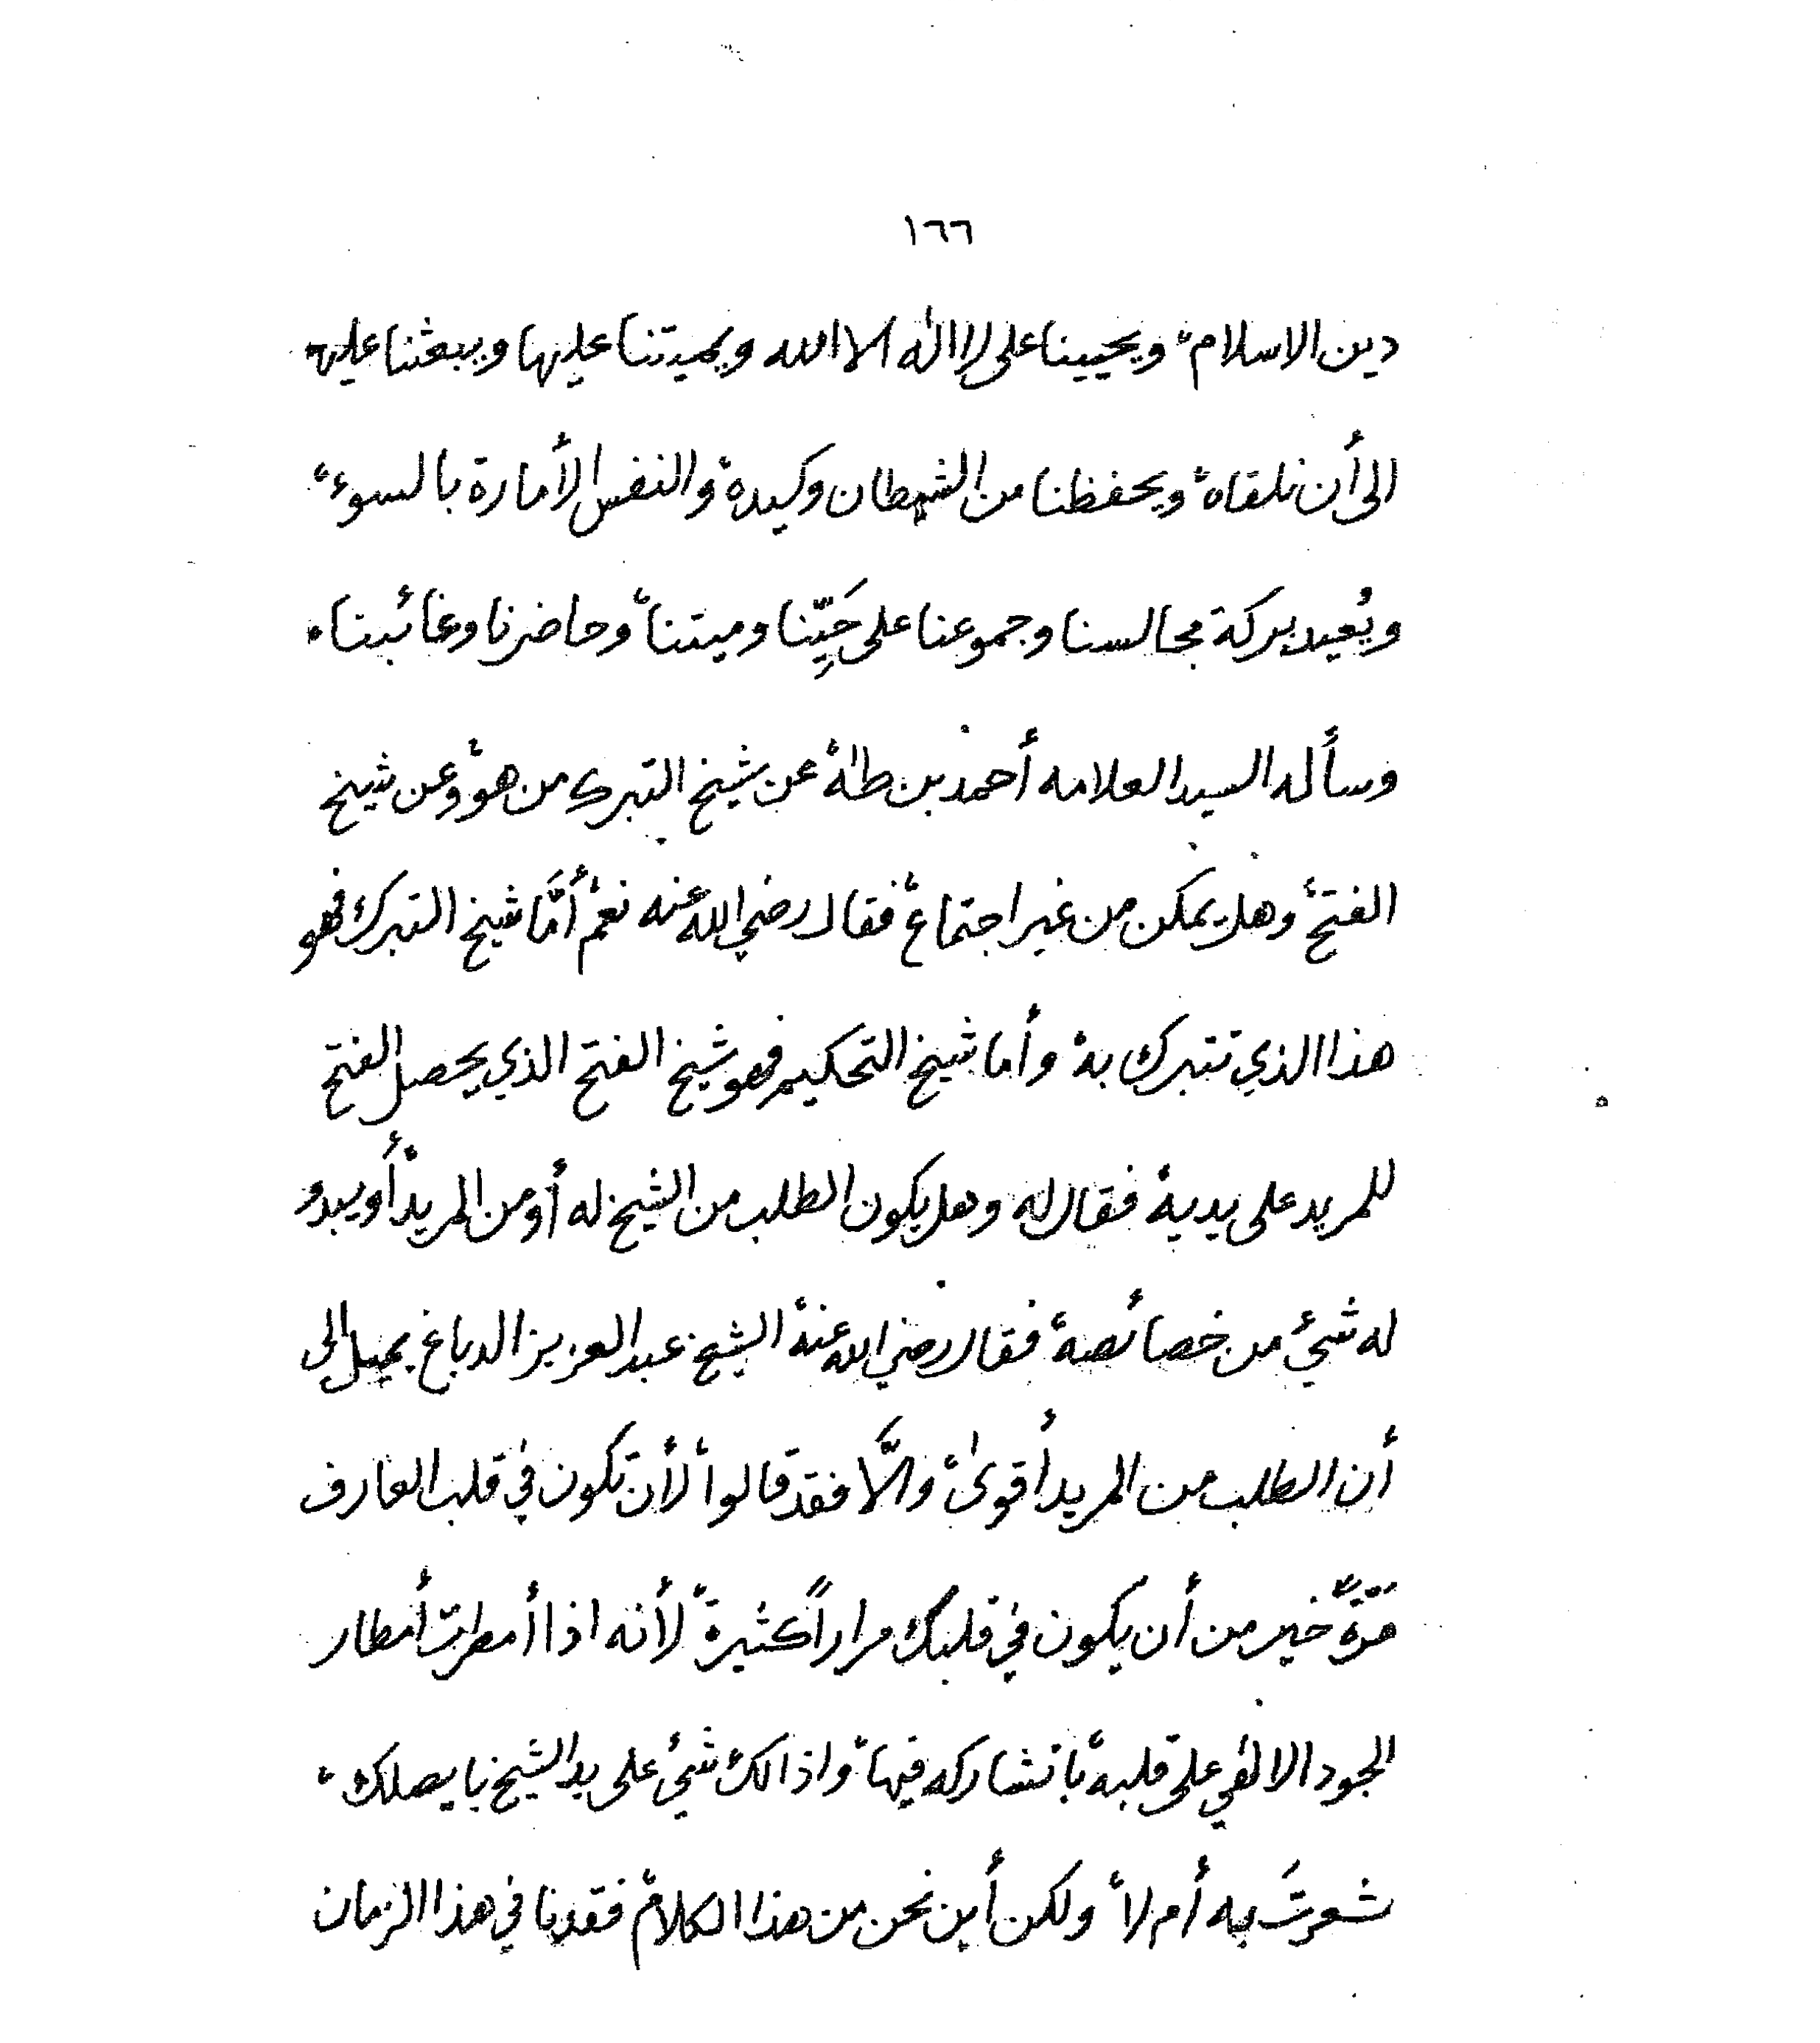 ١٦٦
دين الاسلام، ويحيينا على لا اله الا الله ويميتنا عليها ويبعثنا عليها
الى أن نلقاه، ويحفظنا من الشيطان وكيده، والنفس الأمارة بالسوء،
ويُعيد بركة مجالسنا وجموعنا على حَيِّنا وميتنا، وحاضرنا وغائبنا.
وسأله السيد العلامه أحمد بن طٰه، عن شيخ التبرك من هو، وعن شيخ
الفتح، وهل يمكن من غير اجتماع، فقال رضي الله عنه نعم، أمَّا شيخ التبرك فهو
هذا الذي تتبرك به، وأما شيخ التحكيم فهو شيخ الفتح الذي يحصل الفتح
للمريد على يديه، فقال له وهل يكون الطلب من الشيخ له أو من المريد، أو يبدو
له شيئ من خصائصه، فقال رضي الله عنه، الشيخ عبد العزيز الدباغ يميل الى
أن الطلب من المريد أقوىٰ، والَّا فقد قالوا، لأن تكون في قلب العارف
مَرّةً خير من أن يكون في قلبك مراراً كثيرة، لأنه اذا أمطرت أمطار
الجود الالٰهي على قلبه، باتشاركه فيها، واذا لك شيئ على يد الشيخ بايصلك،
شعرتَ به أم لا، ولكن أين نحن من هذا الكلام، فقدنا في هذا الزمان